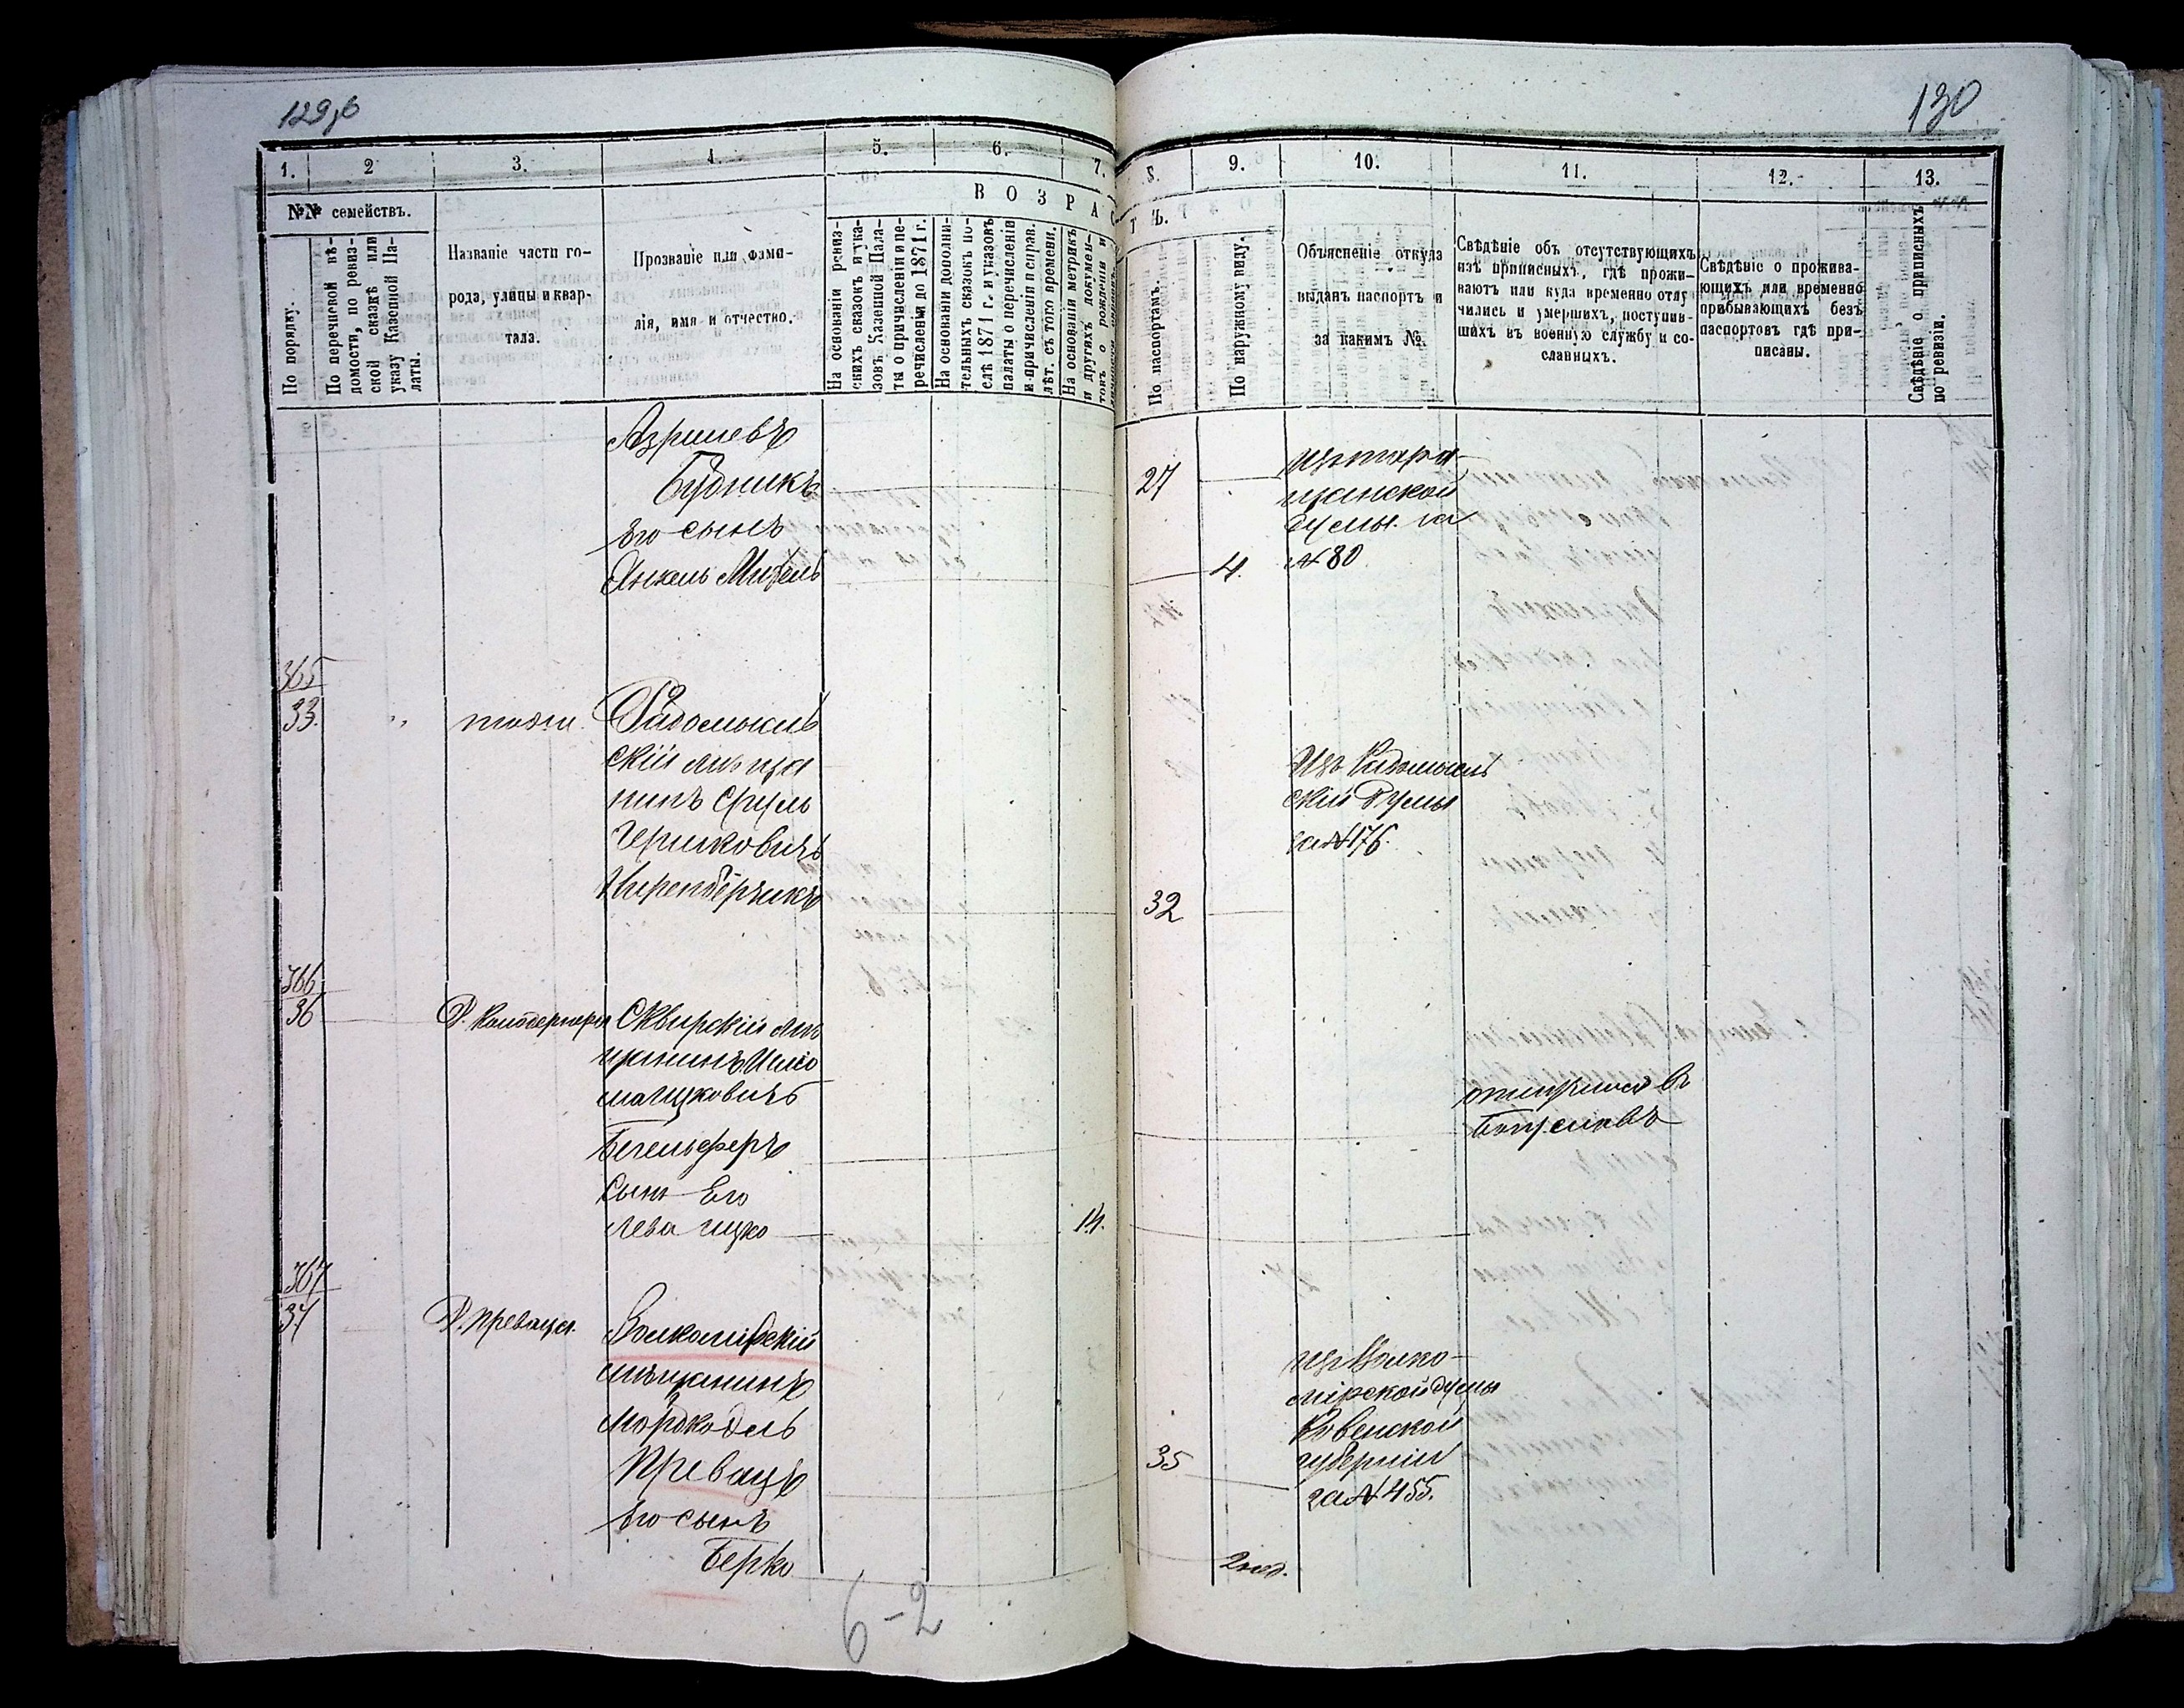 129,б
130
1.
2
3.
4.
5.
6.
7.
8.
9.
10.
11.
12.
13.
№№ семействъ.
ВОЗРАС
ТЪ.
По порядку.
По перечневой вѣ-
домости, по ревиз-
ской сказкѣ или
указу Казенной Па-
латы.
Названіе части го-
рода, улицы и квар-
тала.
Прозваніе или фами-
лія, имя и отчество.
На основаніи ревиз-
скихъ сказокъ и ука-
зовъ Казенной Пала-
ты о причисленіи и пе-
речисленіи до 1871 г.
На основаніи дополни-
тельныхъ сказокъ по-
слѣ 1871 г. и указовъ
палаты о перечисленіи
и причисленіи и справ.
лѣт. съ того времени.
На основаніи метрикъ
и другихъ докумен-
товъ о рожденіи и
По паспортамъ.
По наружному виду.
Объясненіе откуда
выданъ паспортъ и
за какимъ №.
Свѣдѣніе объ отсутствующихъ
изъ приписныхъ, гдѣ прожи-
ваютъ или куда временно отлу
чились и умершихъ, поступив-
шихъ въ военную службу и со-
сланныхъ.
Свѣдѣніе о прожива-
ющихъ или временно
прибывающихъ безъ
паспортовъ гдѣ при-
писаны.
Свѣдѣніе о приписныхъ
по ревизіи.
Будникъ
27
щанской
думы за
Его сынъ
Янкель
4.
№ 80
365
33.
"
Радомысль
скій мѣща
нинъ Сруль
Гершковичъ
32
Изъ Радомысль
скій Думы
за № 176.
366
36
Сквирскій мѣ
щанинъ
сынъ Его
Лева Ицко
14.
367
37
Вилкомірскій
мѣщанинъ
Мордко
Превацъ
35
изъ Вилко-
мірской думы
Ковенской
губерніи
за № 455.
Его сынъ
Берко
2 нед.
6-2